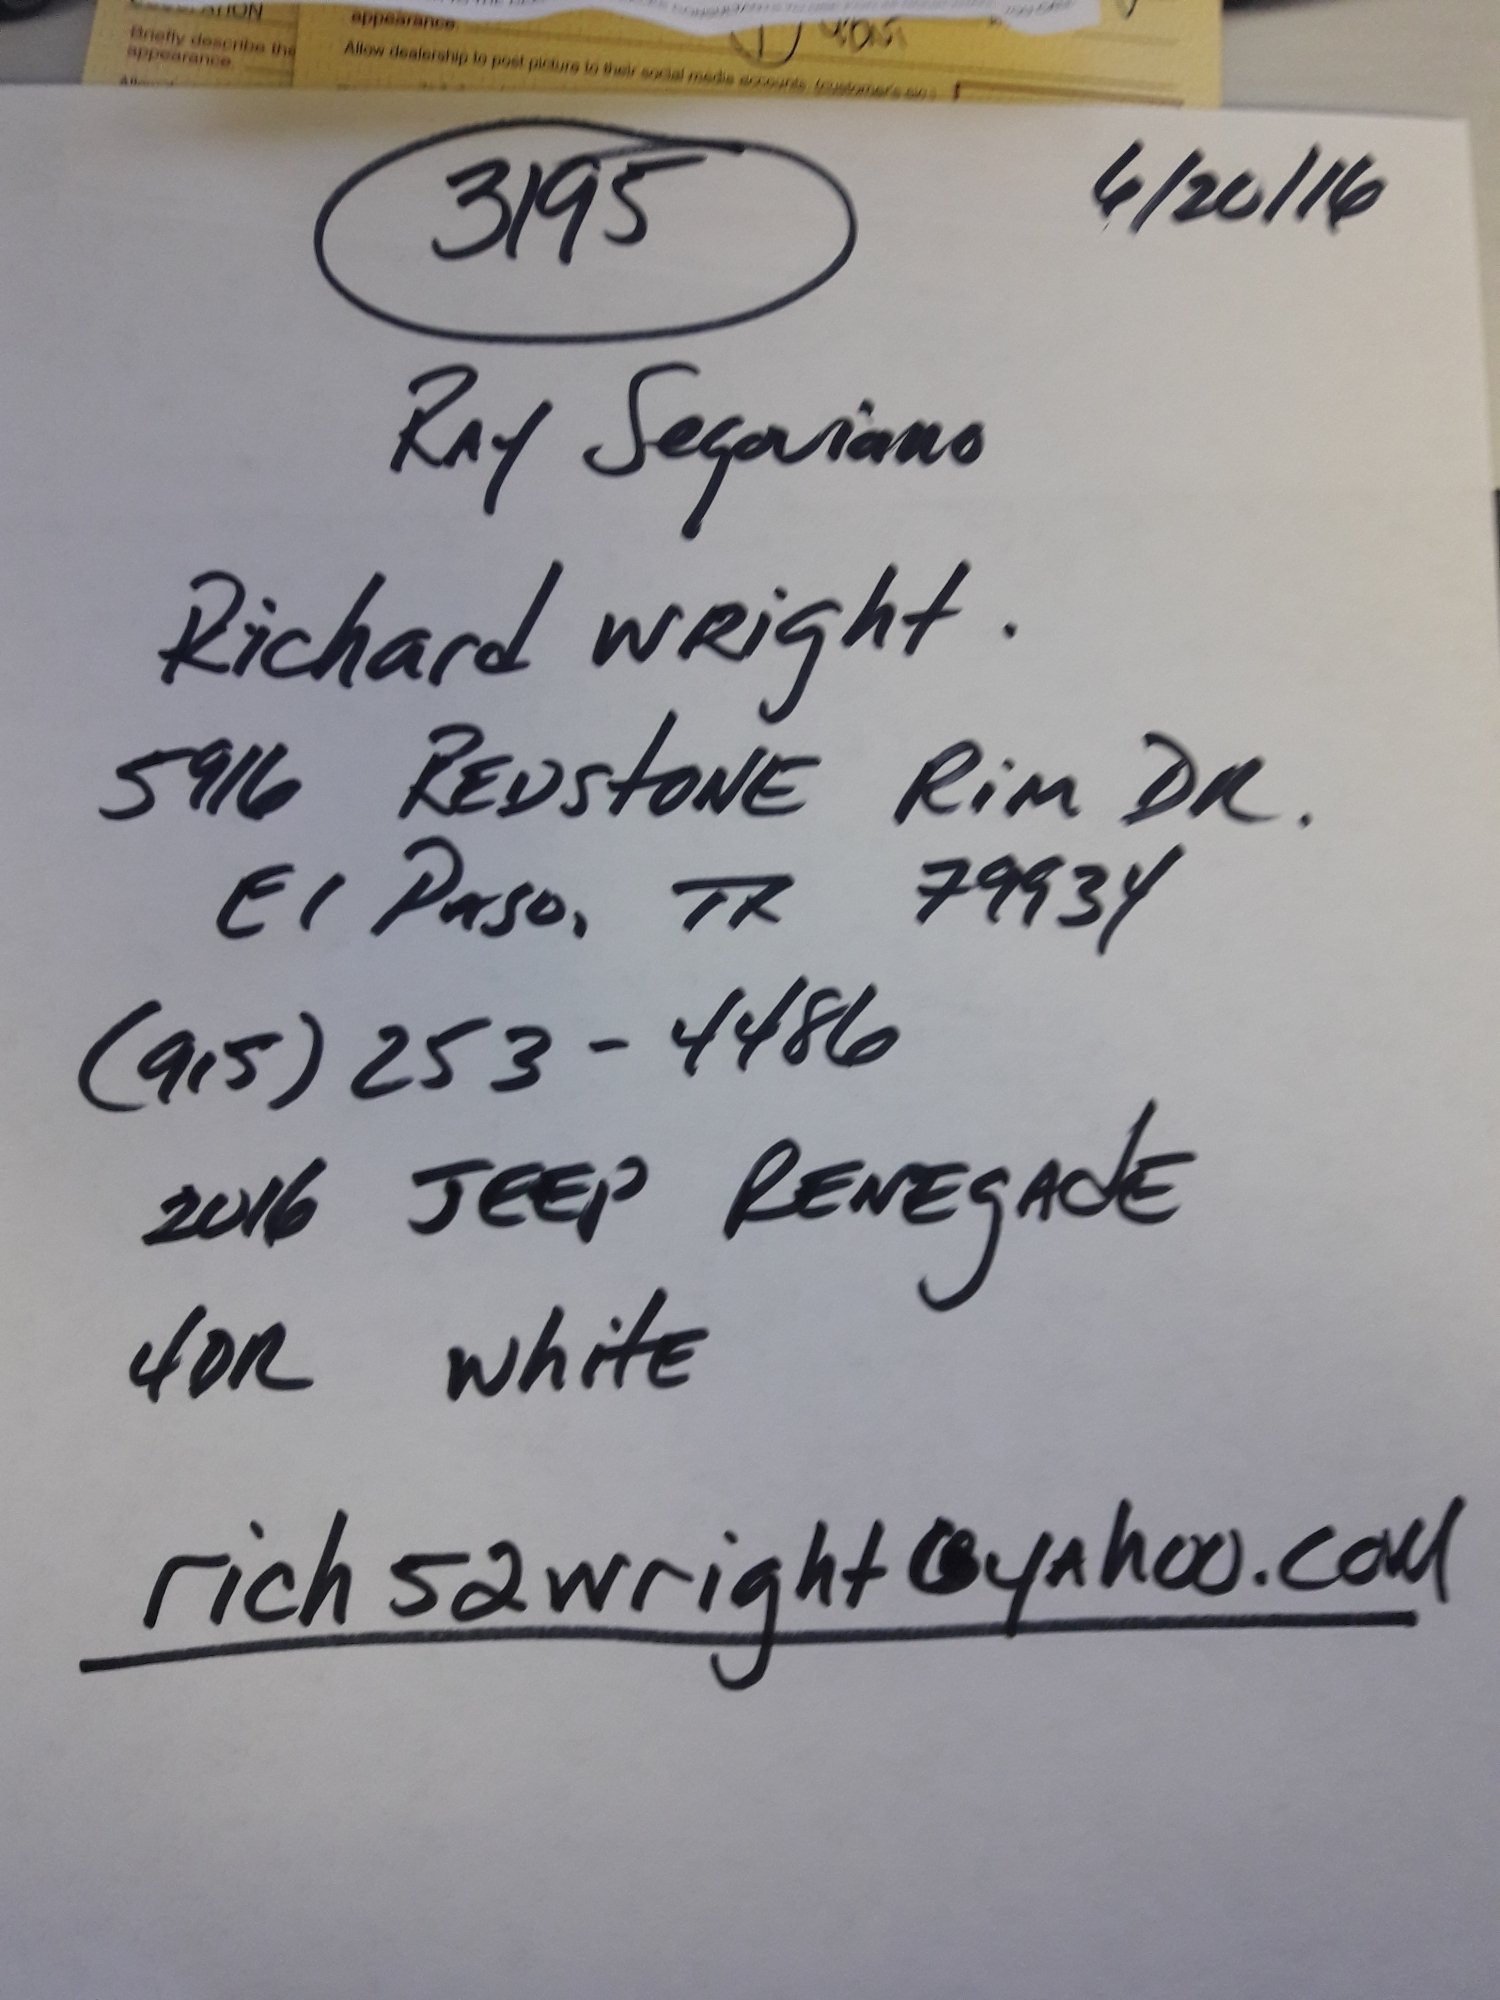 Briefly describe the
appearance
appearance.
Allow dealership to post picture to their social media accounts.
3195
6/20/16
RAY Segoviano
Richard WRight.
5916 REDStONE RiM DR.
El PASO, TX 79934
(915) 253-4486
2016 JEEP RENEgAdE
4DR WhitE
rich52wright@yAhoo.com